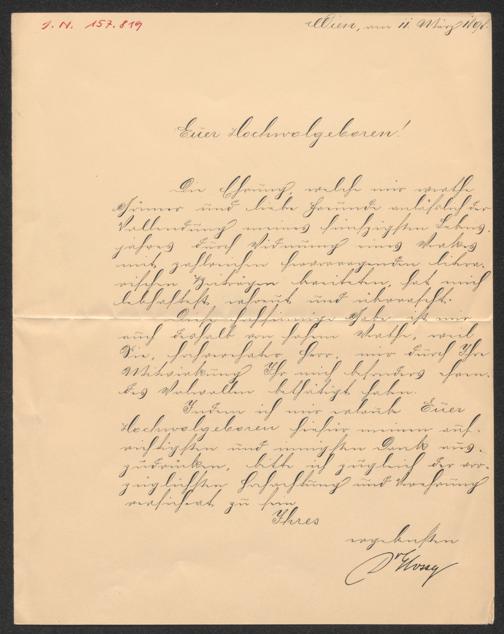 I. N. 157.819
Wien, am 11. März 189
Euer Hochwolgeboren!
Die Ehrung, welche mir werthe
Gönner und liebe Freunde anläßlich der
Vollendung meines fünfzigsten Lebens-
jahres durch Widmung eines Werkes
mit zahlreichen hervorragenden litera-
rischen Beiträgen bereiteten, hat mich
lebhaftest erfreut und überrascht.
Diese hochsinnige Gabe ist mir
auch deshalb von hohem Werthe, weil
Sie, hochverehrter Herr, mir durch Ihre
Mitwirkung Ihr mich besonders ehren-
des Wolwollen bethätigt haben.
Indem ich mir erlaube Euer
Hochwolgeboren hiefür meinen auf-
richtigsten und innigsten Dank aus-
zudrücken, bitte ich zugleich der vor-
züglichsten Hochachtung und Verehrung
versichert zu sein
Ihres
ergebensten
Dr Glossy